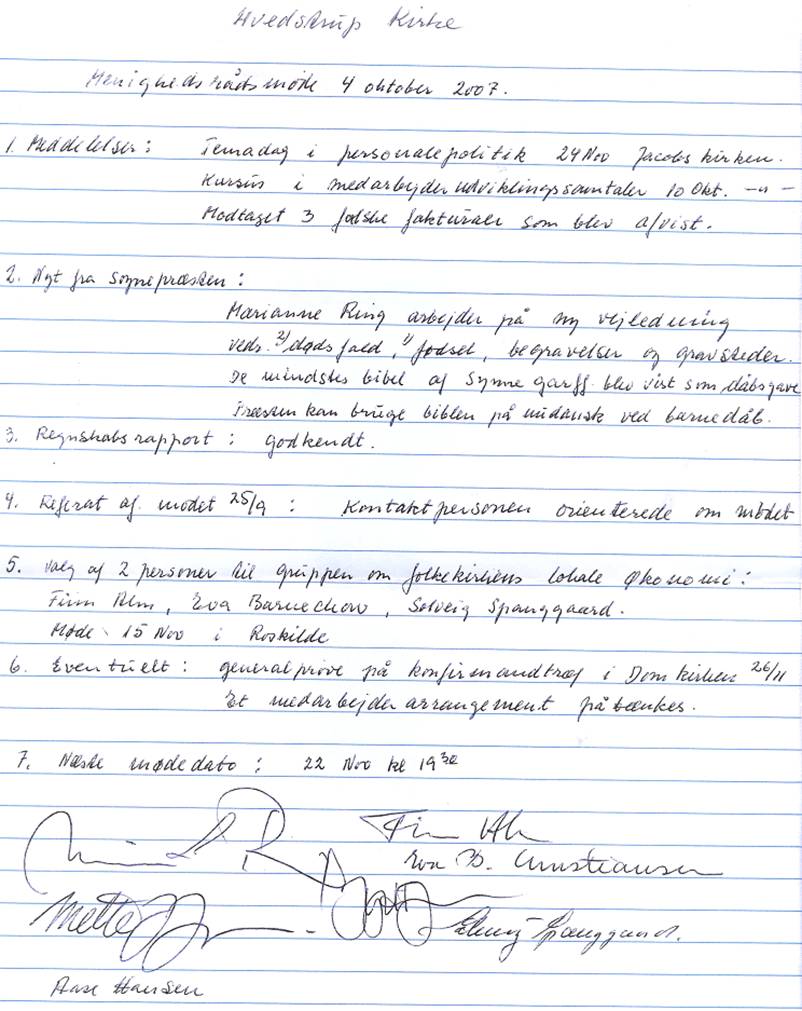 Hvedstrup Kirke
Menighedsrådsmøde 4 oktober 2007.
1. Meddelelser: Temadag i personalepolitik 24 Nov Jacobskirken.
Kursus i medarbejderudviklingssamtaler 10 Okt. -"-
Modtaget 3 falske fakturaer som blev afvist.
2. Nyt fra Sognepræsten:
Marianne Ring arbejder på ny vejledning
vedr. 2/dødsfald, 1/fødsel, begravelser og gravsteder.
De mindstes bibel af Synne Garff blev vist som dåbsgave
Præsten kan bruge biblen på nudansk ved barnedåb.
3. Regnskabsrapport: godkendt.
4. Referat af mødet 25/9: Kontaktpersonen orienterede om mødet
5. Valg af 2 personer til gruppen om folkekirkens lokale økonomi:
Finn Alm, Eva Barnechow, Solveig Spanggaard.
Møde 15 Nov i Roskilde
6. Eventuelt: generalprøve på konfirmandtræf i Domkirken 26/11
Et medarbejderarrangement påtænkes.
7. Næste mødedato: 22 Nov kl 19 30
Finn Alm
Eva B. Christiansen
Mette
Solveig Spanggaard.
Aase Hansen